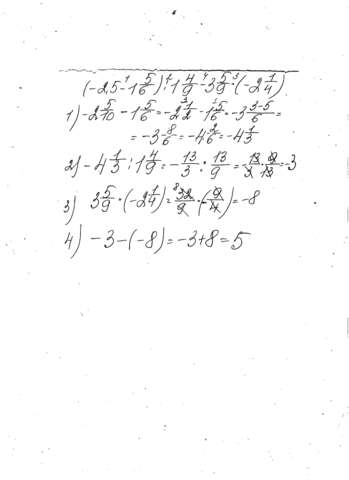 (-2,5-1 5/6):1 4/9-3 5/9·(-2 1/4)
1) -2 5/10 - 1 5/6 = -2 1/2 - 1 5/6 = -3 3-5/6 =
= -3 8/6 = -4 2/6 = -4 1/3
2) -4 1/3 : 1 4/9 = -13/3 : 13/9 = -13/3 · 9/13 = -3
3) 3 5/9 · (-2 1/4) = 32/9 · (-9/4) = -8
4) -3-(-8) = -3+8 = 5